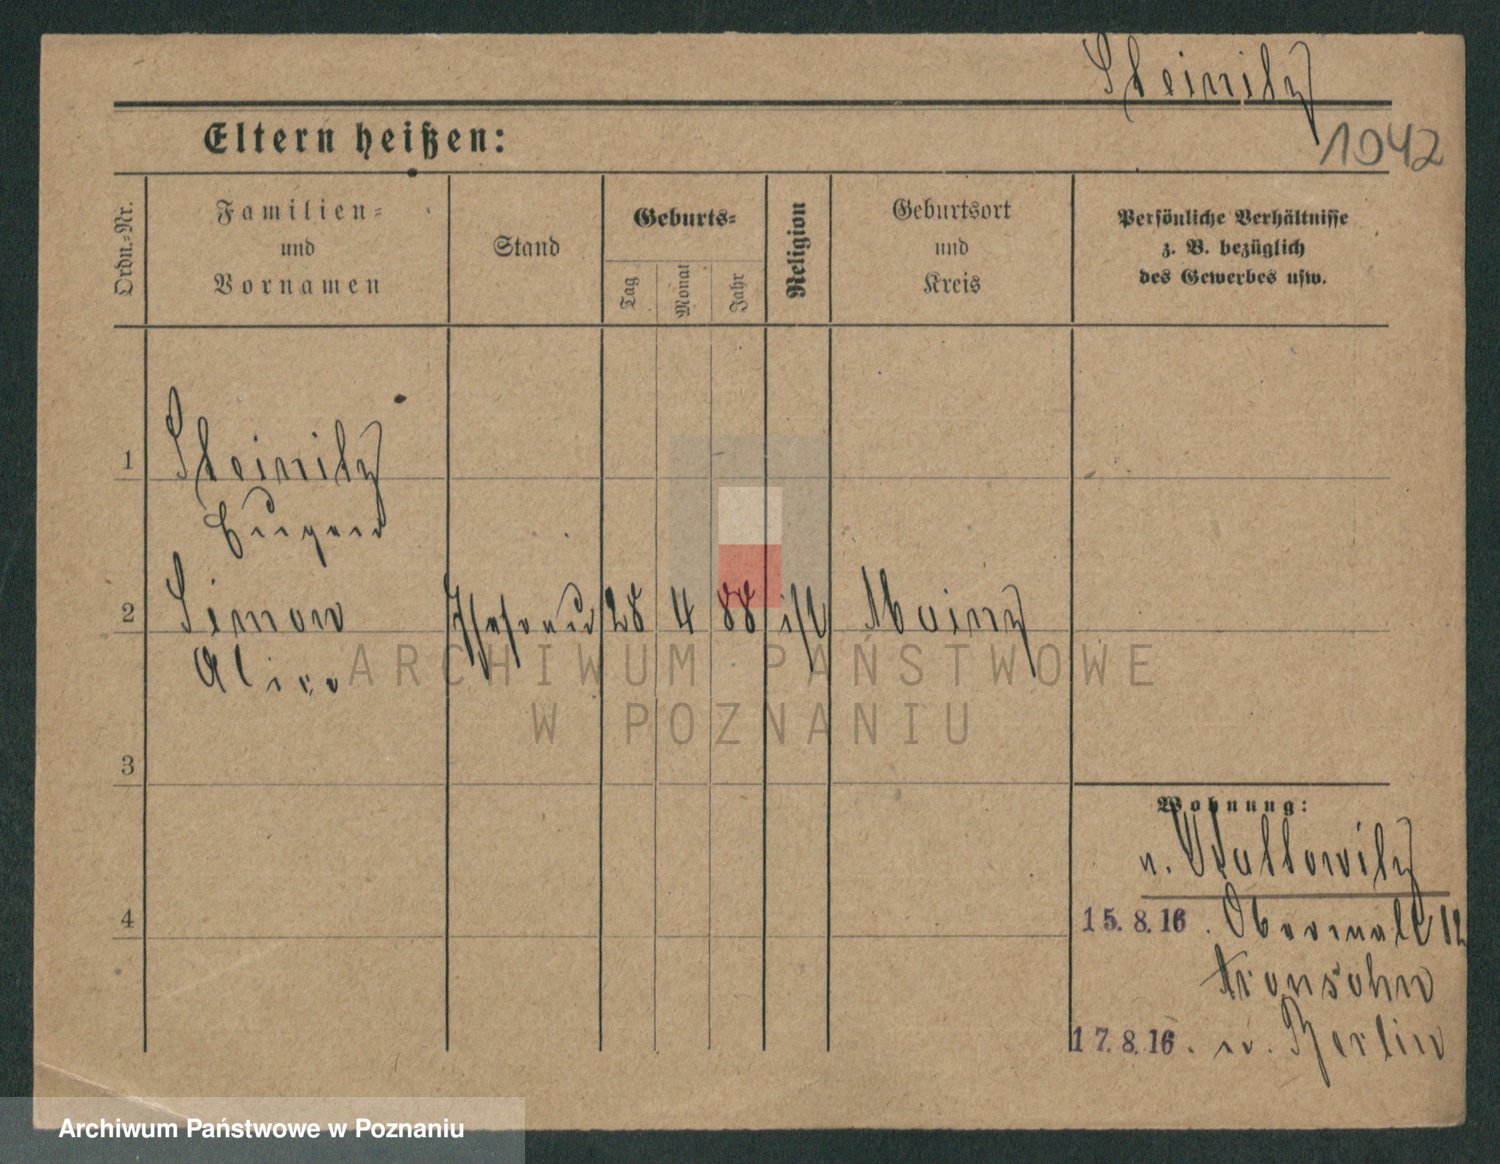 Steinitz
1942
Eltern heißen:
Ordn.-Nr.
Familien-
und
Vornamen
Stand
Geburts-
Tag
Monat
Jahr
Religion
Geburtsort
und
Kreis
Persönliche Verhältnisse
z. B. bezüglich
des Gewerbes usw.
1
Steinitz
Eugen
2
Simon
Ehefrau 28 4 88 isr Mainz
Alice
ARCHIWUM PAŃSTWOWE
W POZNANIU
3
Wohnung:
v. Wallowitz
4
15. 8. 16. Oberwall 12
Aronsohn
17. 8. 16. n. Berlin
Archiwum Państwowe w Poznaniu